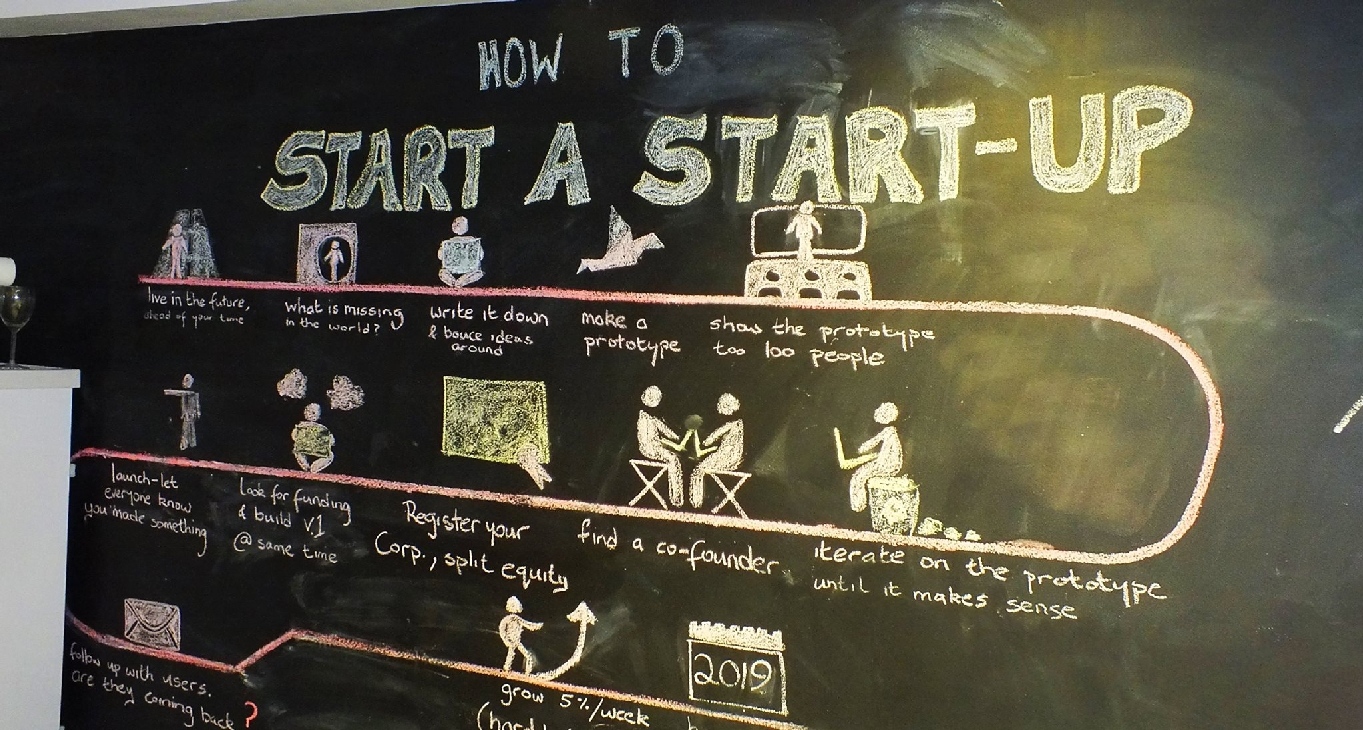 HOW TO
START A START-UP
live in the future,
ahead of your time
what is missing
in the world?
write it down
& bouce ideas
around
make a
prototype
show the prototype
too 100 people
iterate on the prototype
until it makes sense
find a co-founder
Register your
Corp., split equity
Look for funding
& build V1
@ same time
launch-let
everyone know
you made something
follow up with users.
are they coming
back?
grow 5%/week
2019